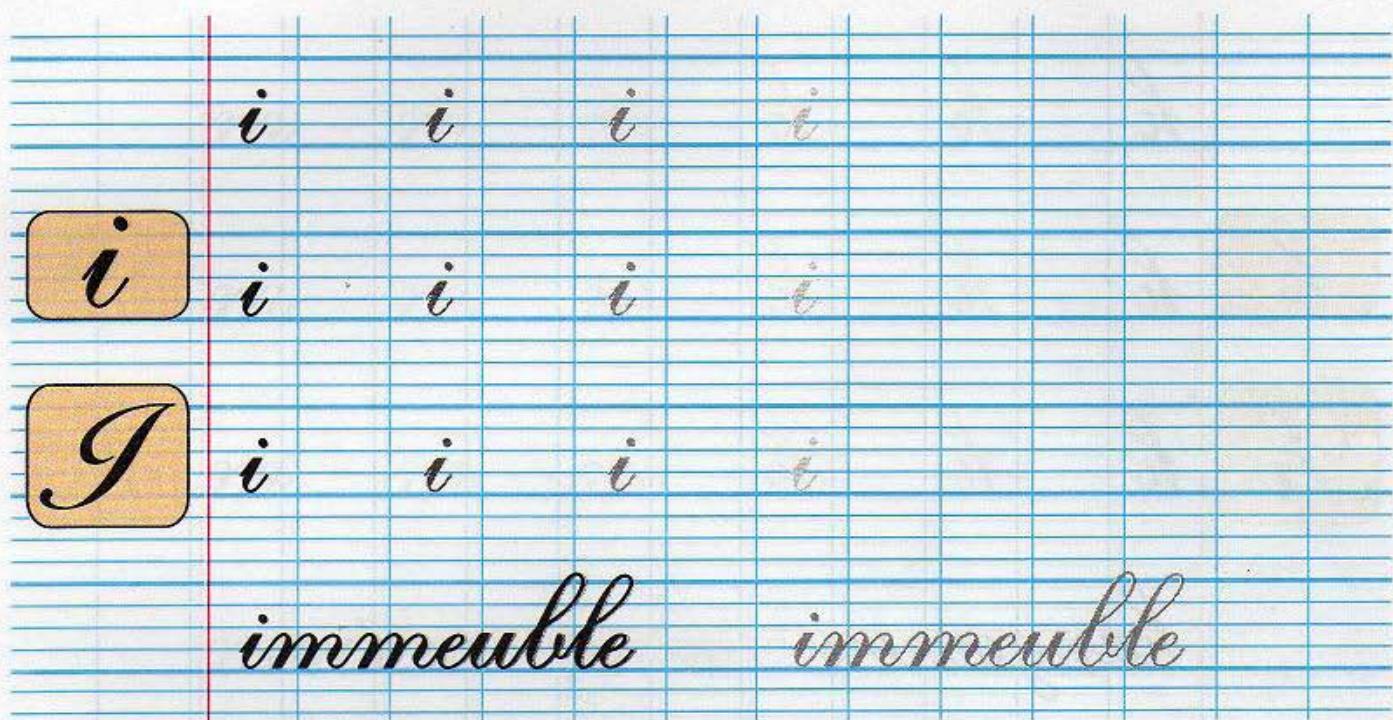 i i i i
i
i i i i
I
i i i i
immeuble immeuble